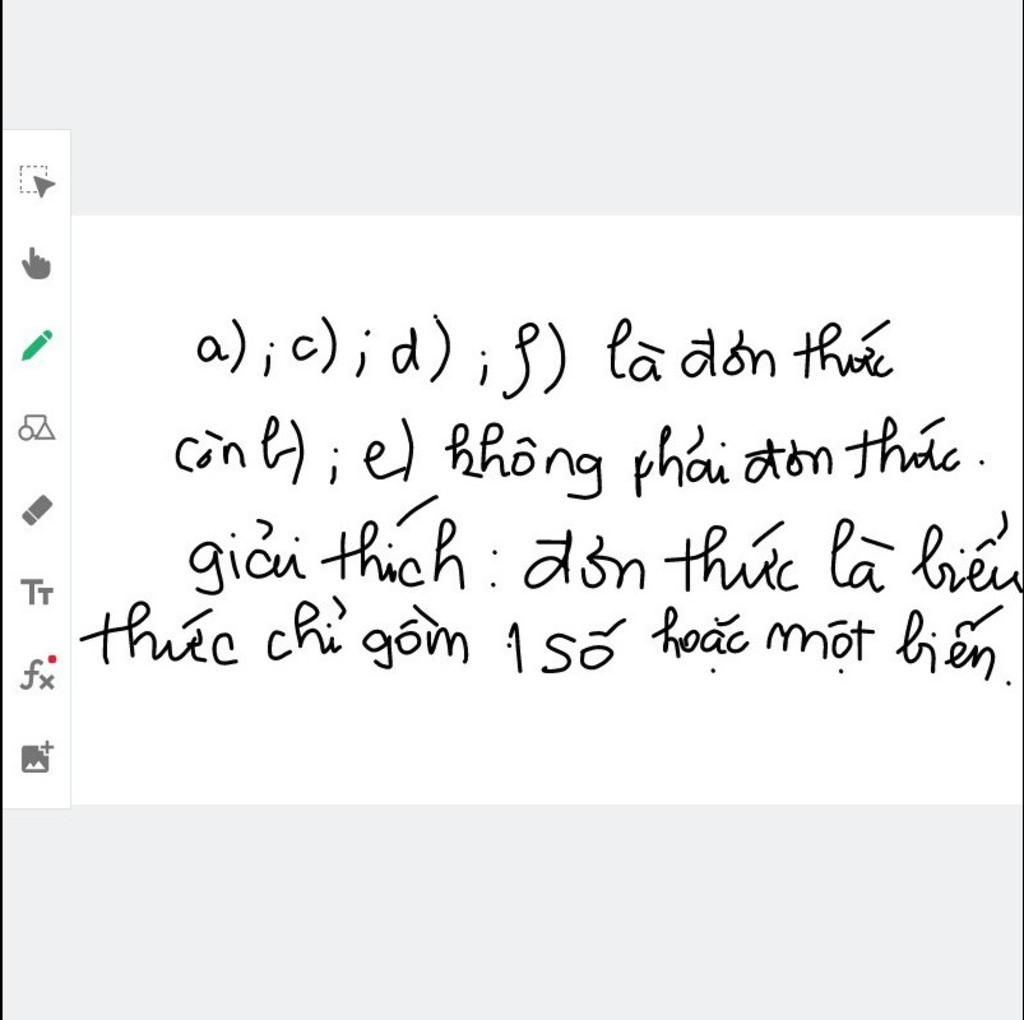 a) ; c) ; d) ; f) là đơn thức
còn b) ; e) không phải đơn thức.
giải thích : đơn thức là biểu
thức chỉ gồm 1 số hoặc một biến.
TT
fx